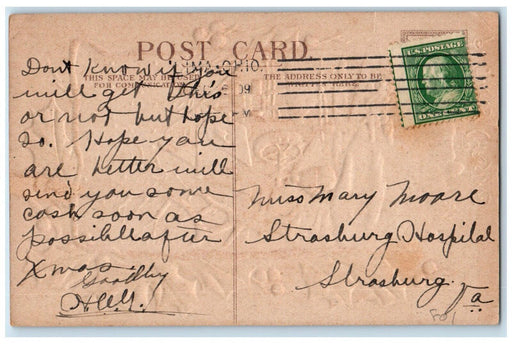 POST CARD
LIMA, OHIO.
THIS SPACE MAY BE
FOR COMMUNICATION
THE ADDRESS ONLY TO BE
WRITTEN HERE.
09
M
U.S. POSTAGE
ONE CENT
Dont know if you
will get this
or not but hope
so. Hope you
are better will
send you some
cash soon as
possible after
Xmas
Goodby
Miss Mary Moore
Strasburg Hospital
Strasburg.
Va